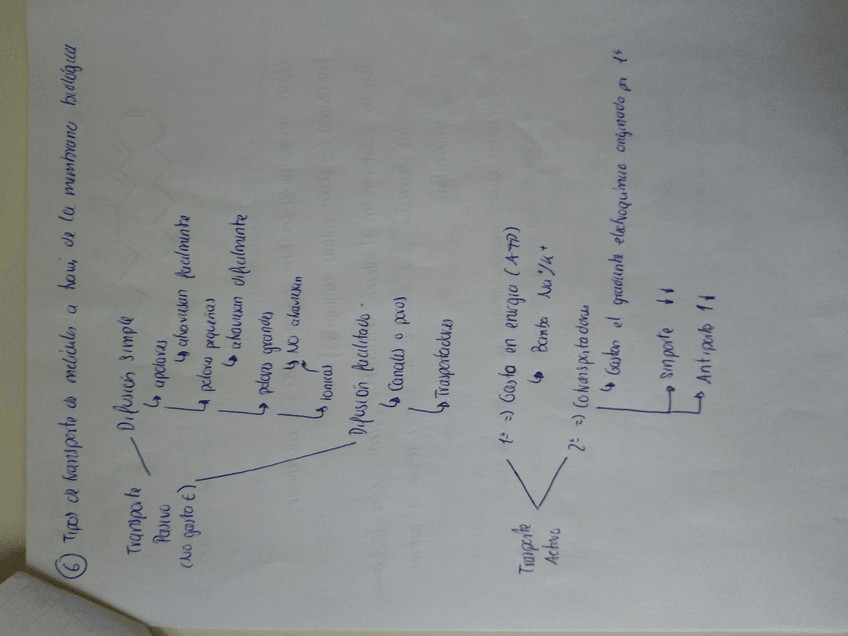 ⑥ Tipos de transporte de moleculas a traves de la membrana biológica
Transporte
Pasivo
(No gasto E)
Difusión simple
↳ apolares
↳ atraviesan facilmente
↳ polares pequeñas
↳ atraviesan dificilmente
↳ polares grandes
↳ NO atraviesan
↳ ionicas
Difusión facilitada.
↳ Canales o poros
↳ Trasportadores
Trasporte
Activo
1º => Gasta en energia (ATP)
↳ Bomba Na⁺/K⁺
2º => Cotransportadores
↳ Gastan el gradiente electroquimico originado por 1º
↳ Simporte ↓↓
↳ Antiporte ↑↓